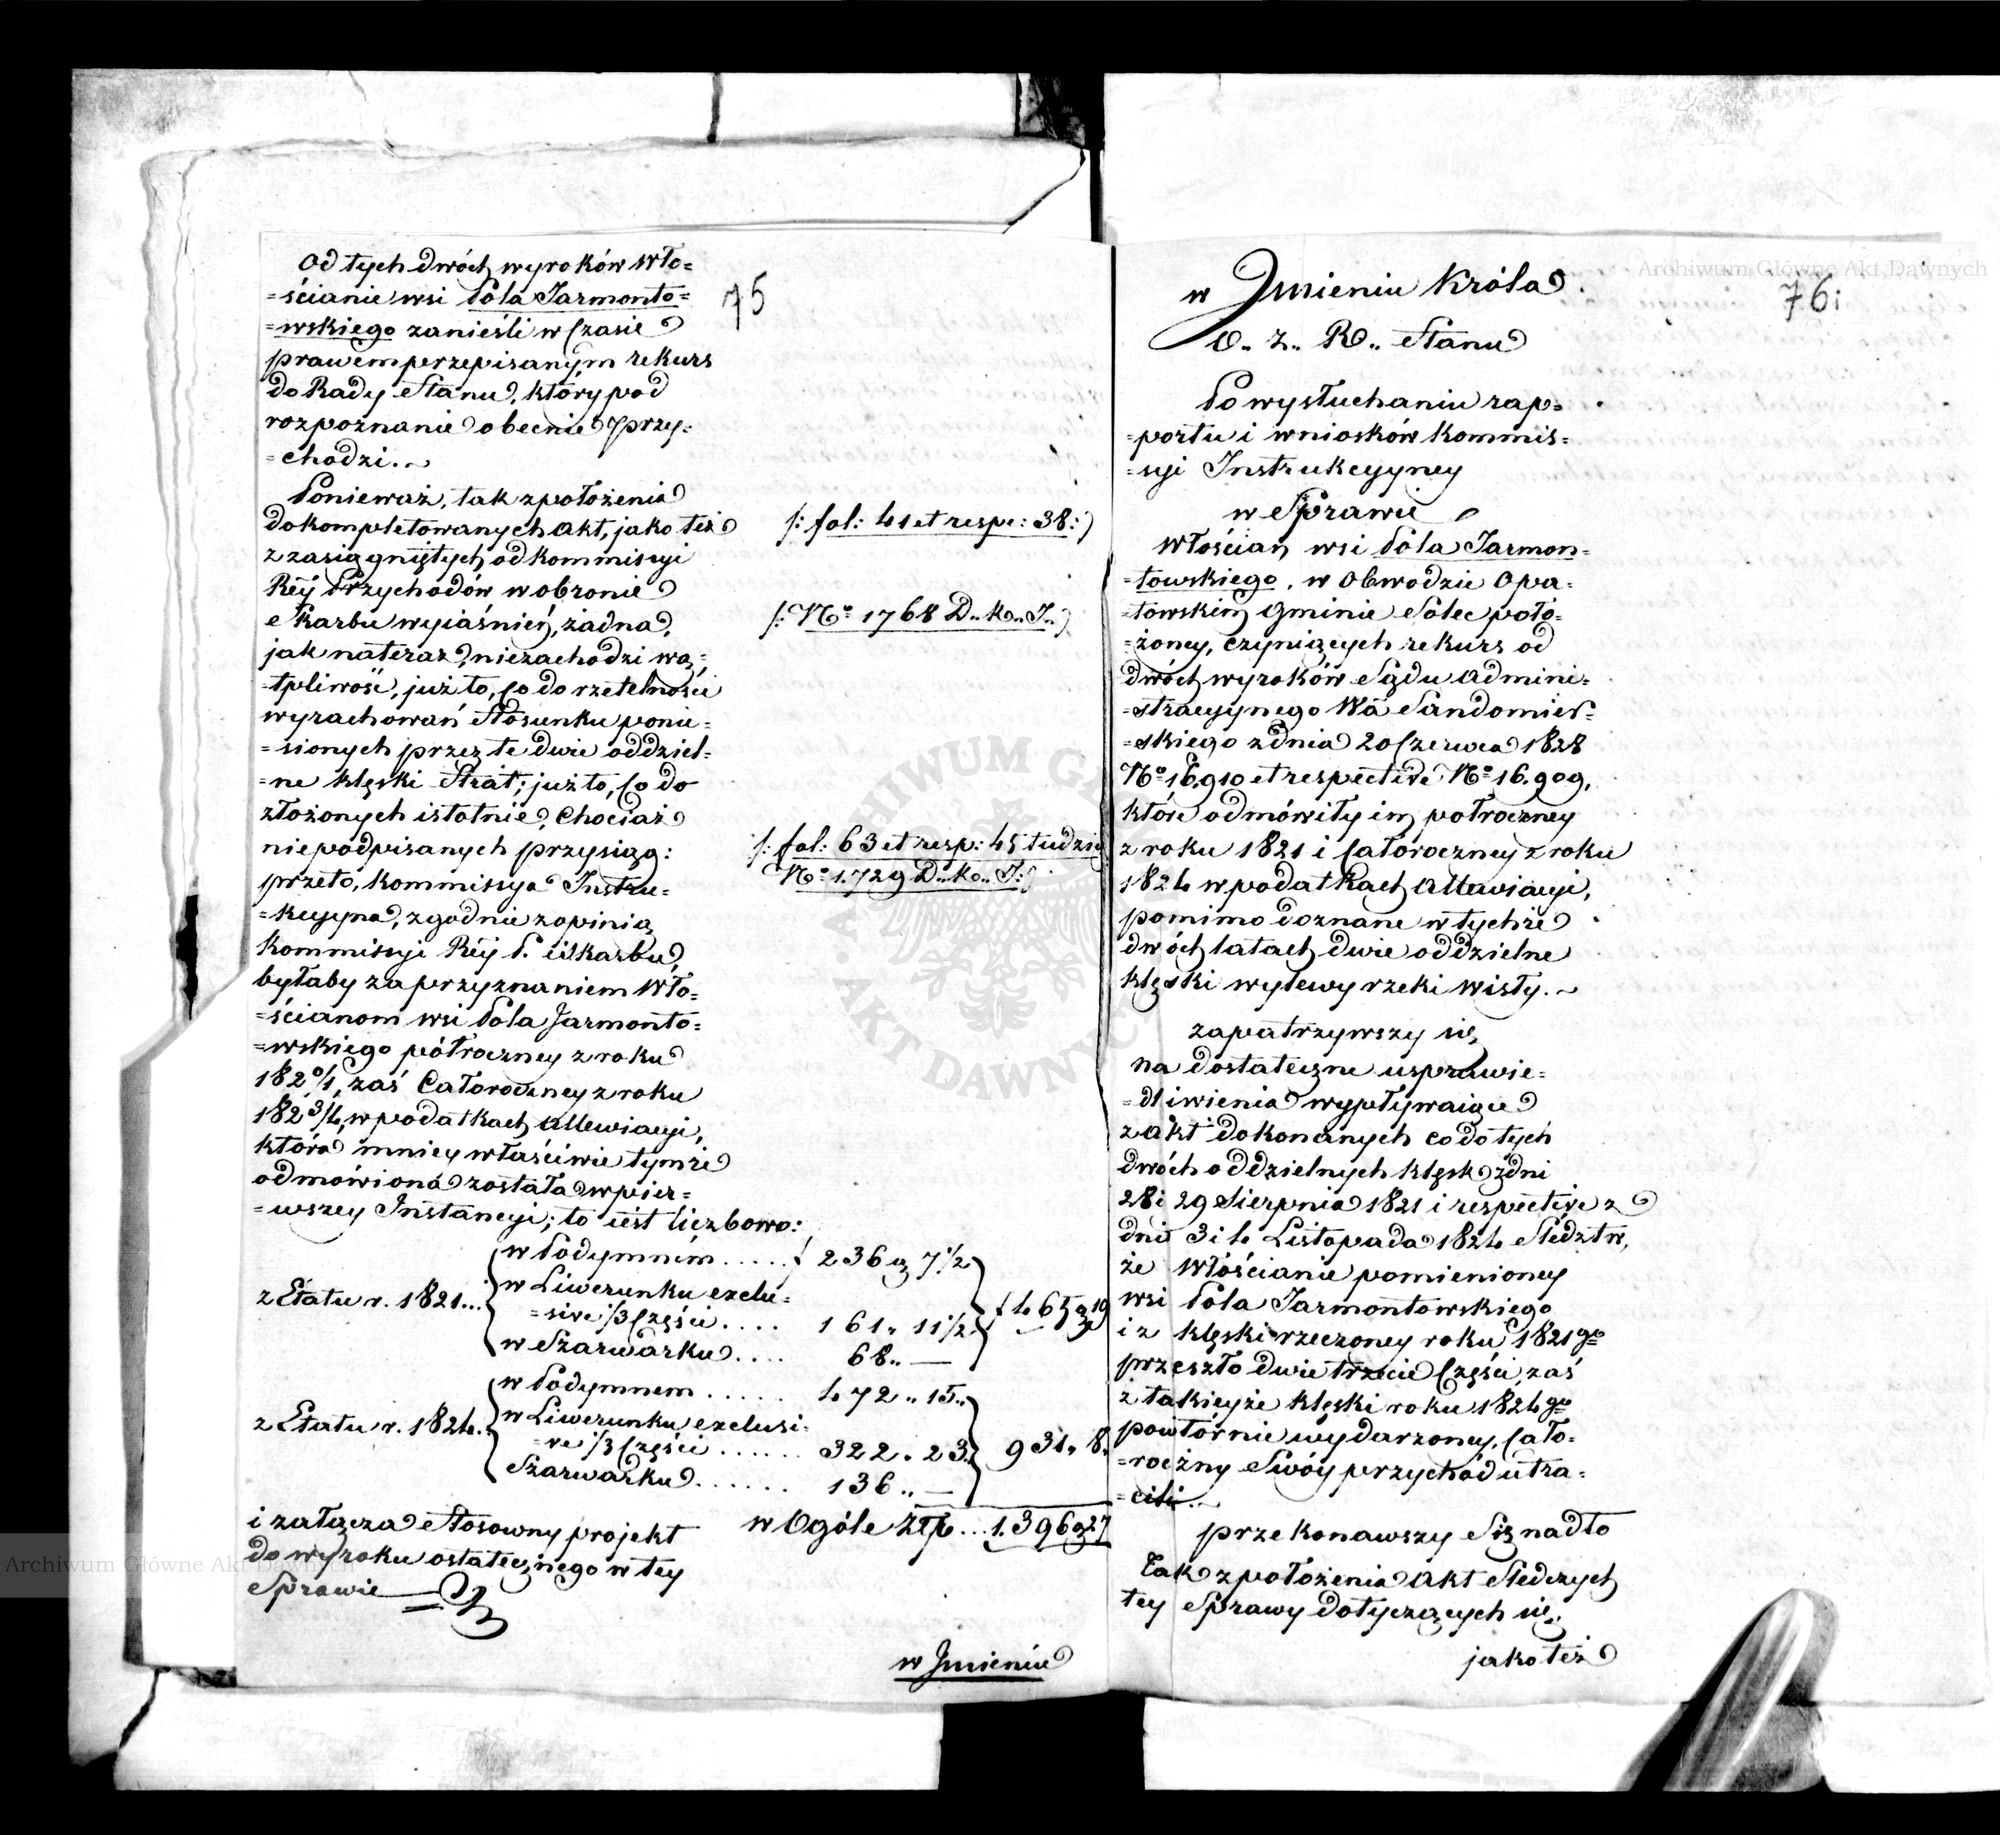 75
Od tych dwóch wyroków Wło=
=ścianie wsi Pola Jarmonto=
=wskiego zanieśli w Czasie
prawem przepisanym rekurs
do Rady Stanu, który pod
rozpoznanie obecnie przy=
=chodzi.
Ponieważ, tak z położenia
dokompletowanych Akt, jako też
z zasiągniętych od Kommissyi
Rēy Przychodów w obronie
Skarbu wyiaśnień, żadna,
jak na teraz, niezachodzi wą=
=tpliwość, już to, Co do rzetelności
wyrachowań Stosunku ponie=
=sionych przez te dwie oddziel=
=ne klęski Strat; już to, Co do
złożonych istotnie, Chociaż
niepodpisanych przysiąg:
przeto, Kommissya Instru=
=kcyyna, zgodnie z opinią
Kommissyi Rēy P. i Skarbu,
byłaby za przyznaniem Wło=
=ścianom wsi Pola Jarmonto=
=wskiego półroczney z roku
1820/1, zaś Całoroczney z roku
1823/4, w podatkach Allewiacyi,
która mniey właściwie tymże
odmówioną została w pier=
=wszey Instancyi; to iest liczbowo:
/: fol: 41 et resp: 38:/
/: No 1768 D.. K.. I.. /
/: fol: 63 et resp: 45 tudzież
No 1.729 D.. K.. I:/
z Etatu r. 1821...
w Podymném ..... f 236 g 7 1/2
w Liwerunku exclu=
=sive 1/3 Części .... 161 „ 11 1/2
w Szarwarku .... 68 „ —
f 465 g 19
z Etatu r. 1824.
w Podymnem ...... 472 „ 15 „
w Liwerunku exclusi=
=ve 1/3 Części ...... 322 „ 23
Szarwarku ...... 136 „ —
931 „ 8
w Ogóle Złp ... 1.396 g 27
i załącza Stosowny projekt
do wyroku ostatecznego w tey
Sprawie
w Imieniu
76:
w Imieniu Króla
O.. Z.. R.. Stanu
Po wysłuchaniu rap=
=portu i wniosków Kommis=
=syi Instrukcyyney
w Sprawie
Włościan wsi Pola Jarmon=
=towskiego, w Obwodzie Opa=
=towskim Gminie Solec poło=
=żoney, czyniących rekurs od
dwóch wyroków Sądu Admini=
=stracyynego Wā Sandomier=
=skiego z dnia 20 Czerwca 1828
No 16.910 et respective No 16.909,
które odmówiły im półroczney
z roku 1821 i Całoroczney z roku
1824 w podatkach Allewiacyi,
pomimo doznane w tychże
dwóch latach dwie oddzielne
klęski wylewy rzeki Wisły.
zapatrzywszy się
na dostateczne usprawie=
=dliwienia wypływaiące
z akt dokonanych co do tych
dwóch oddzielnych klęsk z dni
28 i 29 Sierpnia 1821 i respective z
dni 3 i 4 Listopada 1824 Śledztw,
że Włościanie pomienioney
wsi Pola Jarmontowskiego
i z klęski rzeczoney roku 1821go
przeszło dwie trzecie Części, zaś
z takieyże klęski roku 1824go
powtórnie wydarzoney, Cało=
=roczny Swóy przychód utra=
=cili.
przekonawszy Się nadto
tak z położenia Akt Śledczych
tey Sprawy dotyczących się,
jako też
Archiwum Główne Akt Dawnych
Archiwum Główne Akt Dawnych
ARCHIWUM GŁÓWNE AKT DAWNYCH